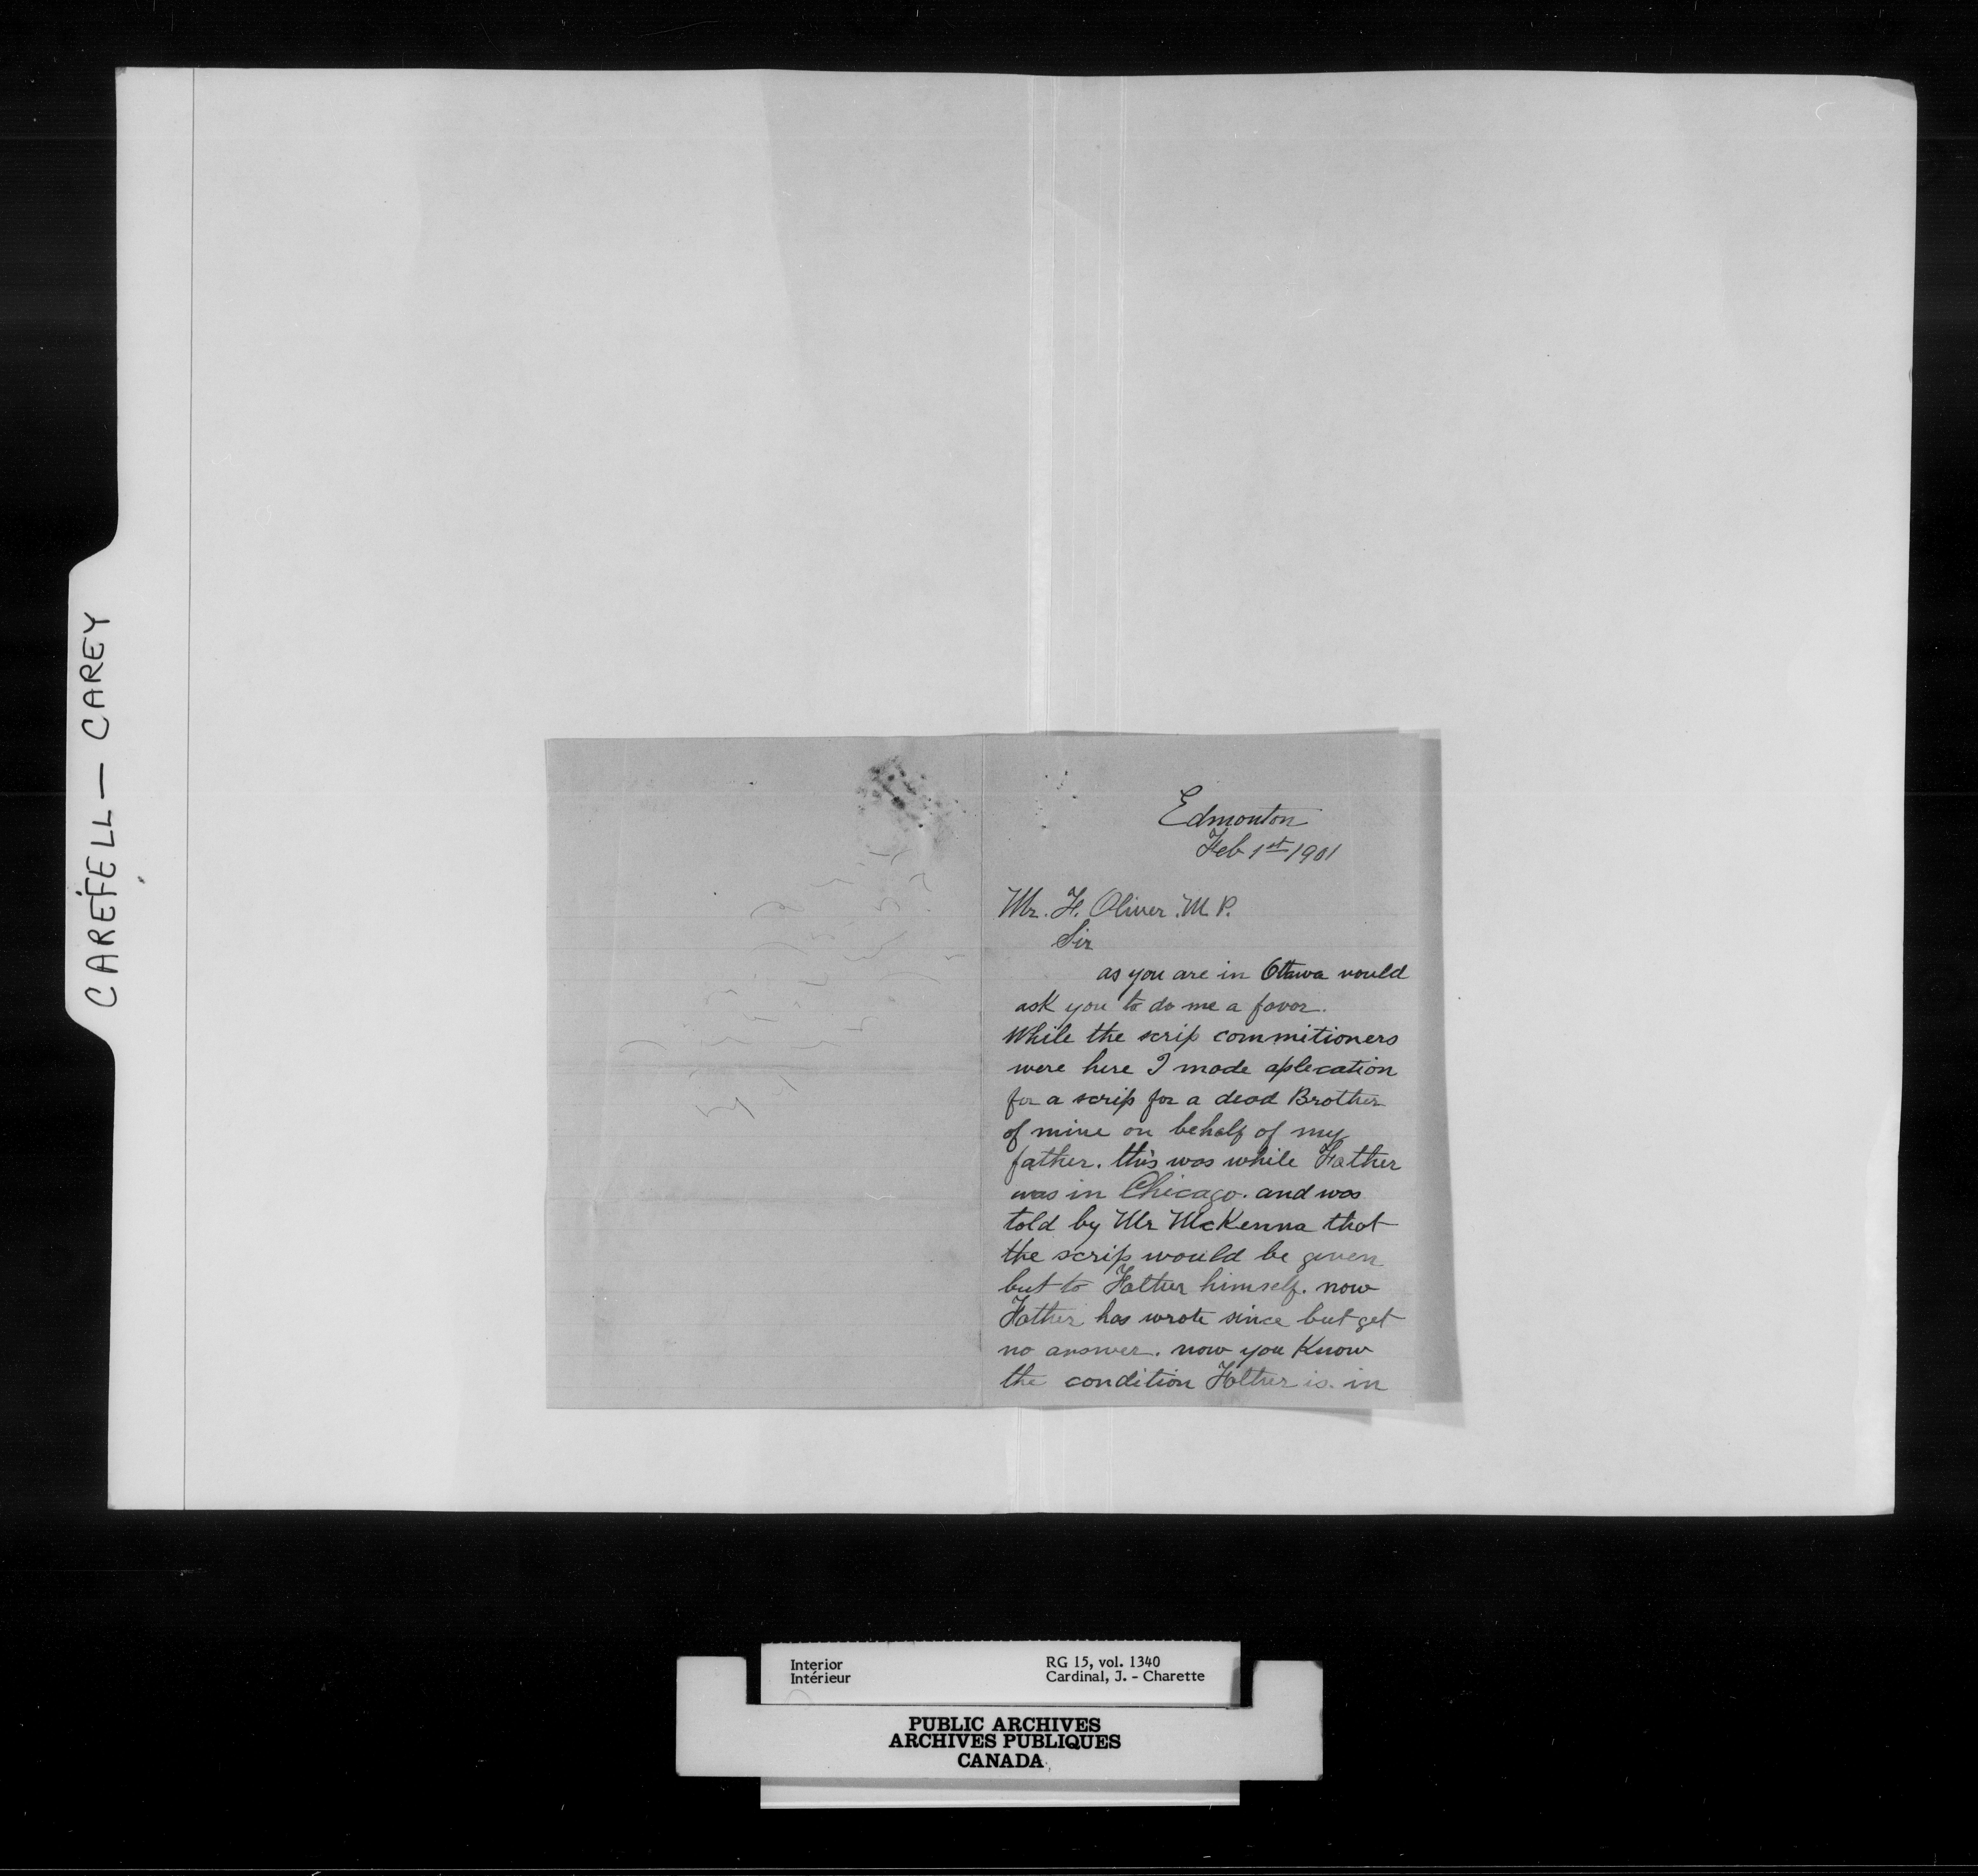 CAREFELL — CAREY
Edmonton
Feb 1st 1901
Mr. F. Oliver. M. P.
Sir
as you are in Ottawa would
ask you to do me a favor.
While the scrip commitioners
were here I made aplecation
for a scrip for a dead Brother
of mine on behalf of my
father. this was while Father
was in Chicago. and was
told by Mr McKenna that
the scrip would be given
but to Father himself. now
Father has wrote since but get
no answer. now you Know
the condition Father is in
Interior
Intérieur
RG 15, vol. 1340
Cardinal, J. - Charette
PUBLIC ARCHIVES
ARCHIVES PUBLIQUES
CANADA